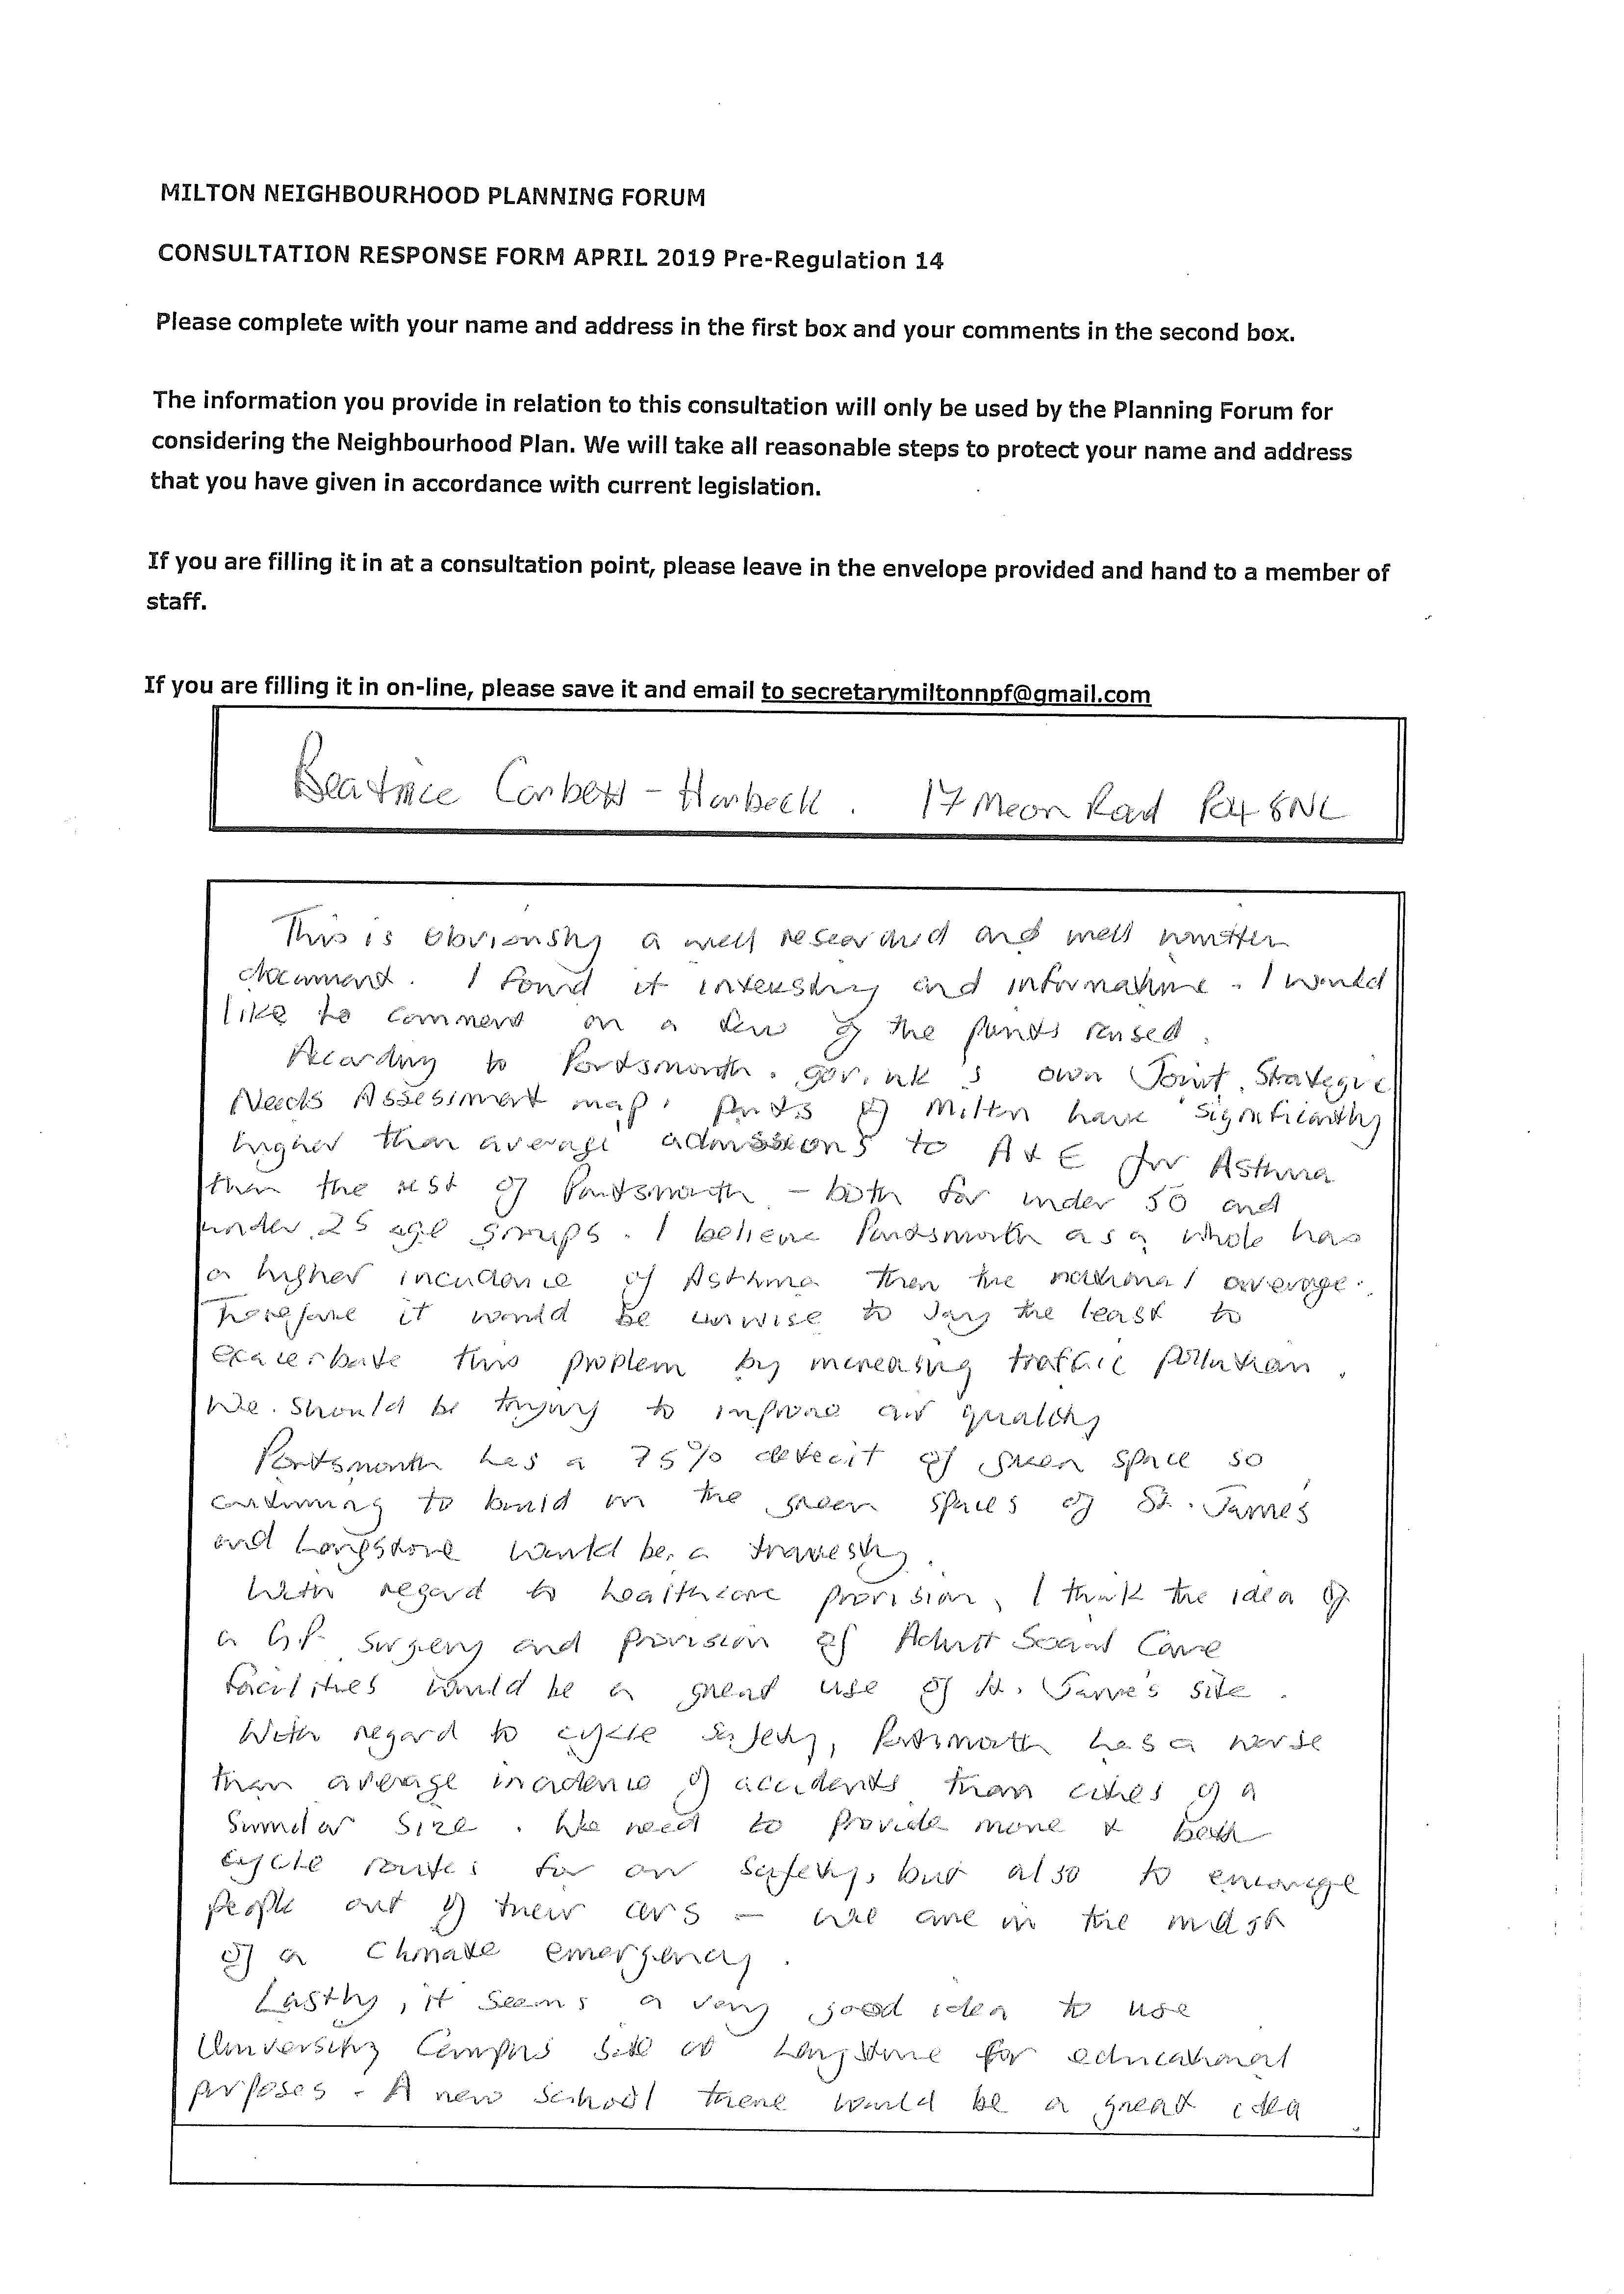 MILTON NEIGHBOURHOOD PLANNING FORUM
CONSULTATION RESPONSE FORM APRIL 2019 Pre-Regulation 14
Please complete with your name and address in the first box and your comments in the second box.
The information you provide in relation to this consultation will only be used by the Planning Forum for
considering the Neighbourhood Plan. We will take all reasonable steps to protect your name and address
that you have given in accordance with current legislation.
If you are filling it in at a consultation point, please leave in the envelope provided and hand to a member of
staff.
If you are filling it in on-line, please save it and email to secretarymiltonnpf@gmail.com
Beatrice Corbett - Harbeck. 17 Meon Road PO4 8NL
This is obviously a well researched and well written
document. I found it interesting and informative. I would
like to comment on a few of the points raised.
According to Portsmouth.gov.uk's own Joint Strategic
Needs Assesment map, parts of Milton have 'significantly
higher than average' admissions to A & E for Asthma
than the rest of Portsmouth - both for under 50 and
under 25 age groups. I believe Portsmouth as a whole has
a higher incidence of Asthma then the national average.
Therefore it would be unwise to say the least to
exacerbate this problem by increasing traffic pollution.
We should be trying to improve air quality
Portsmouth has a 75% defecit of green space so
continuing to build on the green spaces of St. James
and Langstone would be a travesty.
With regard to healthcare provision, I think the idea of
a GP surgery and provision of Adult Social Care
facilities would be a great use of St. James's site.
With regard to cycle safety, Portsmouth has a worse
than average incidence of accidents than cities of a
similar size. We need to provide more & better
cycle routes for our safety, but also to encourage
people out of their cars - we are in the midst
of a climate emergency.
Lastly, it seems a very good idea to use
University Campus site at Langstone for educational
purposes. A new school there would be a great idea.